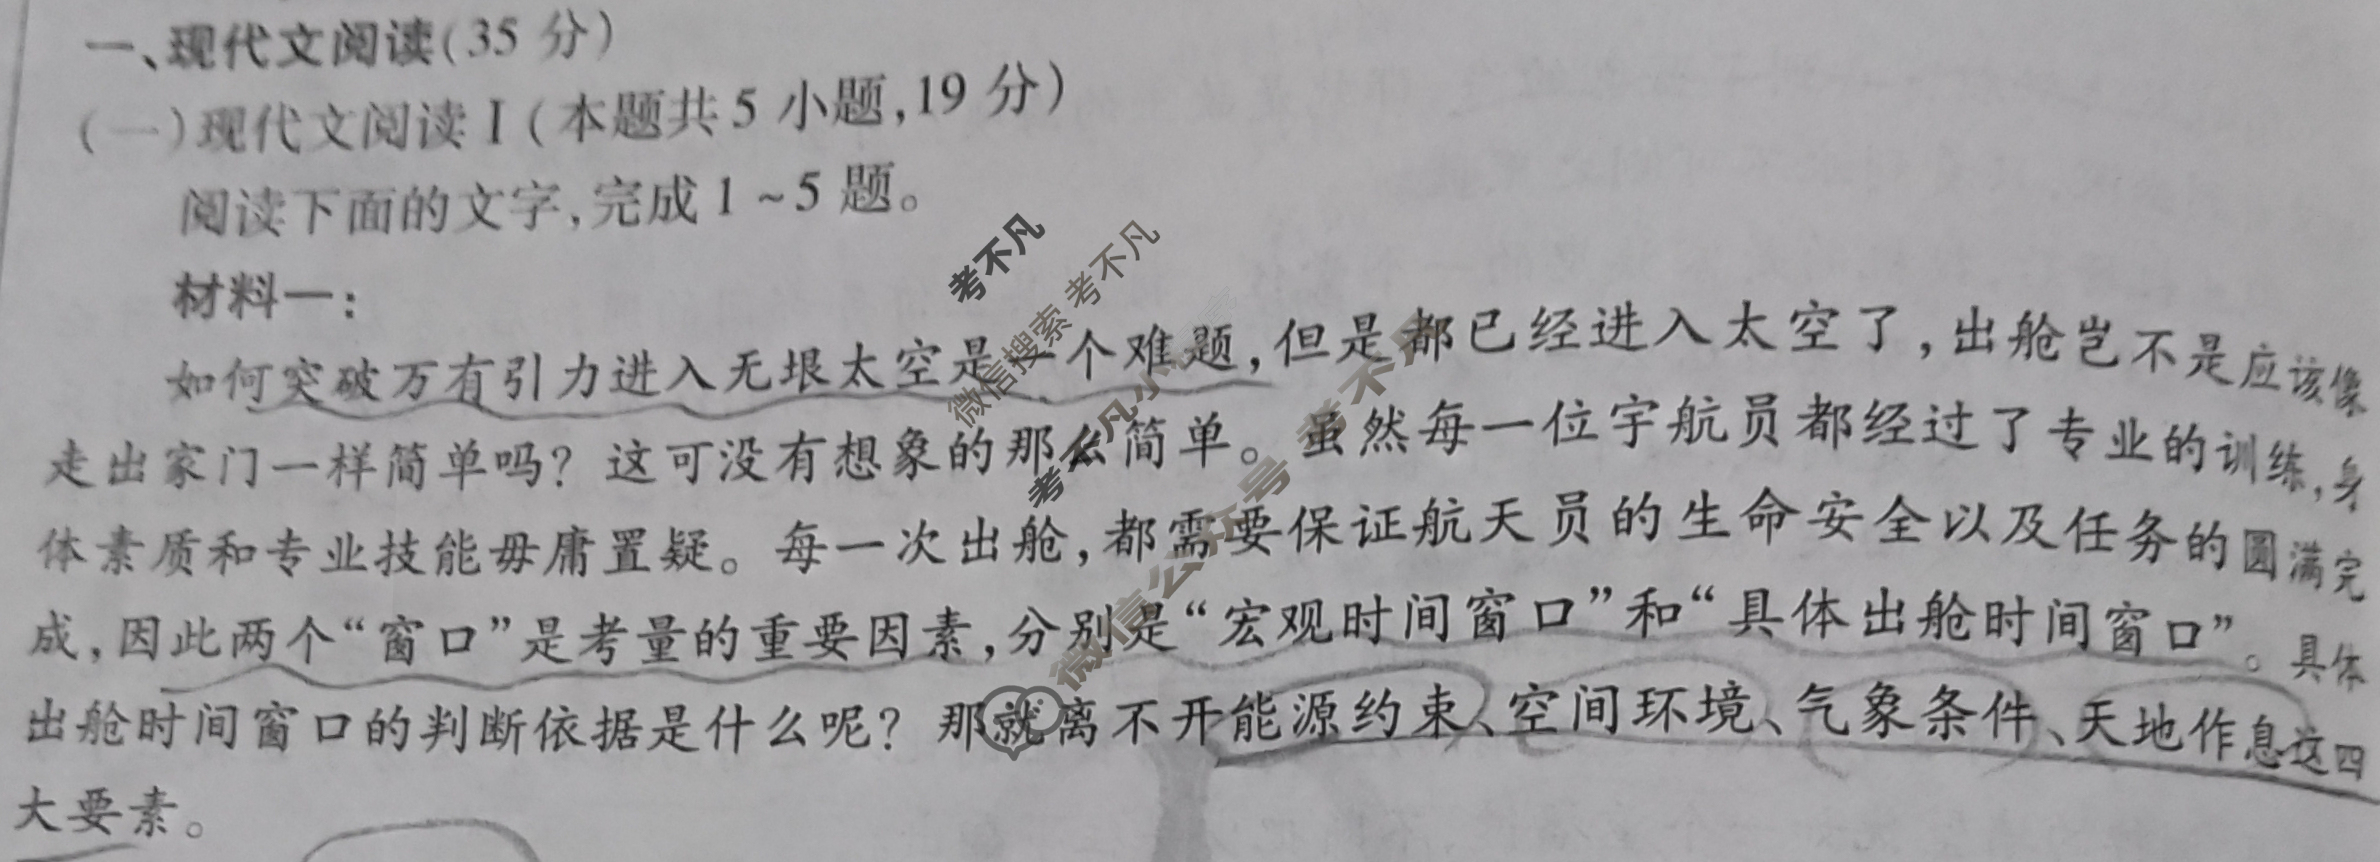 一、现代文阅读(35 分)
(一)现代文阅读 I (本题共 5 小题,19 分)
阅读下面的文字,完成 1 ~5 题。
材料一:
如何突破万有引力进入无垠太空是一个难题,但是都已经进入太空了,出舱岂不是应该像
走出家门一样简单吗? 这可没有想象的那么简单。虽然每一位宇航员都经过了专业的训练,身
体素质和专业技能毋庸置疑。每一次出舱,都需要保证航天员的生命安全以及任务的圆满完
成,因此两个“窗口”是考量的重要因素,分别是“宏观时间窗口”和“具体出舱时间窗口”。具体
出舱时间窗口的判断依据是什么呢? 那就离不开能源约束、空间环境、气象条件、天地作息这四
大要素。
考不凡
微信搜索 考不凡
考不凡
考不凡
微信公众号